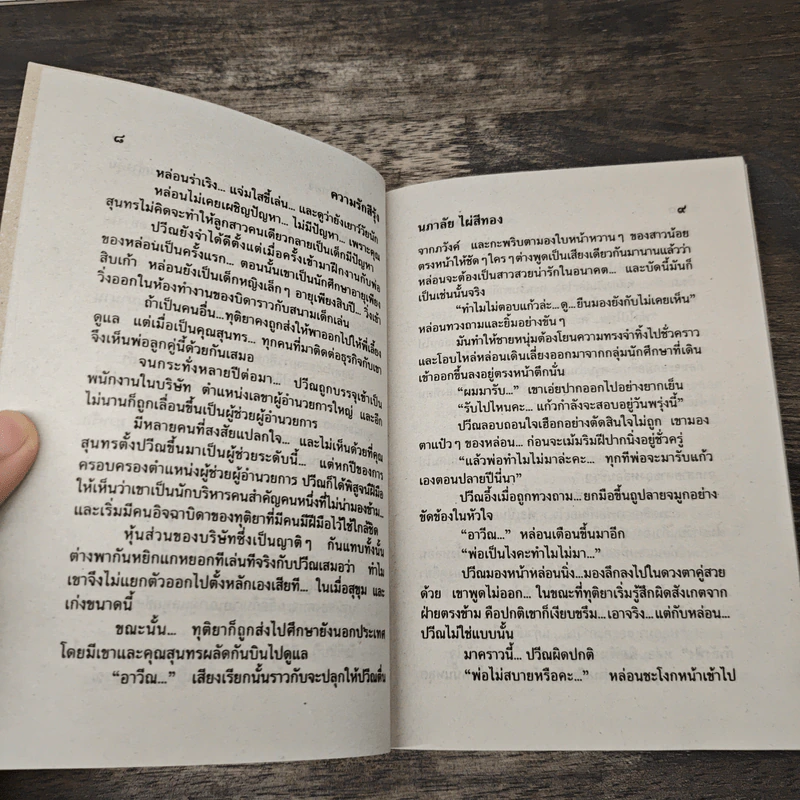 ๘
ความรักสีรุ้ง
หล่อนร่าเริง... แจ่มใสขี้เล่น... และดูว่ายังเยาว์วัยนัก
หล่อนไม่เคยเผชิญปัญหา... ไม่มีปัญหา... เพราะคุณ
สุนทรไม่คิดจะทำให้ลูกสาวคนเดียวกลายเป็นเด็กมีปัญหา
ปวีณยังจำได้ดีตั้งแต่เมื่อครั้งเข้ามาฝึกงานกับพ่อ
ของหล่อนเป็นครั้งแรก... ตอนนั้นเขาเป็นนักศึกษาอายุเพียง
สิบเก้า หล่อนยังเป็นเด็กหญิงเล็กๆ อายุเพียงสิบปี... วิ่งเข้า
วิ่งออกในห้องทำงานของบิดาราวกับสนามเด็กเล่น
ถ้าเป็นคนอื่น...ทุติยาคงถูกส่งให้พาออกไปให้พี่เลี้ยง
ดูแล แต่เมื่อเป็นคุณสุนทร... ทุกคนที่มาติดต่อธุรกิจกับเขา
จึงเห็นพ่อลูกคู่นี้ด้วยกันเสมอ
จนกระทั่งหลายปีต่อมา... ปวีณถูกบรรจุเข้าเป็น
พนักงานในบริษัท ตำแหน่งเลขาผู้อำนวยการใหญ่ และอีก
ไม่นานก็ถูกเลื่อนขึ้นเป็นผู้ช่วยผู้อำนวยการ
มีหลายคนที่สงสัยแปลกใจ... และไม่เห็นด้วยที่คุณ
สุนทรตั้งปวีณขึ้นมาเป็นผู้ช่วยระดับนี้... แต่หกปีของการ
ครอบครองตำแหน่งผู้ช่วยผู้อำนวยการ ปวีณก็ได้พิสูจน์ฝีมือ
ให้เห็นว่าเขาเป็นนักบริหารคนสำคัญคนหนึ่งที่ไม่น่ามองข้าม..
และเริ่มมีคนอิจฉาบิดาของทุติยาที่มีคนมีฝีมือไว้ใช้ใกล้ชิด
หุ้นส่วนของบริษัทซึ่งเป็นญาติๆ กันแทบทั้งนั้น
ต่างพากันหยิกแกหยอกทีเล่นทีจริงกับปวีณเสมอว่า ทำไม
เขาจึงไม่แยกตัวออกไปตั้งหลักเองเสียที... ในเมื่อสุขุม และ
เก่งขนาดนี้
ขณะนั้น... ทุติยาก็ถูกส่งไปศึกษายังนอกประเทศ
โดยมีเขาและคุณสุนทรผลัดกันบินไปดูแล
“อาวีณ...” เสียงเรียกนั้นราวกับจะปลุกให้ปวีณตื่น
นภาลัย ไผ่สีทอง
๙
จากภวังค์ และกะพริบตามองใบหน้าหวานๆ ของสาวน้อย
ตรงหน้าให้ชัดๆ ใครๆ ต่างพูดเป็นเสียงเดียวกันมานานแล้วว่า
หล่อนจะต้องเป็นสาวสวยน่ารักในอนาคต... และบัดนี้มันก็
เป็นเช่นนั้นจริง
“ทำไมไม่ตอบแก้วล่ะ...ดู...ยืนมองยังกับไม่เคยเห็น”
หล่อนทวงถามและยิ้มอย่างขันๆ
มันทำให้ชายหนุ่มต้องโยนความทรงจำทิ้งไปชั่วคราว
และโอบไหล่หล่อนเดินเลี่ยงออกมาจากกลุ่มนักศึกษาที่เดิน
เข้าออกขึ้นลงอยู่ตรงหน้าตึกนั่น
“ผมมารับ...” เขาเอ่ยปากออกไปอย่างยากเย็น
“รับไปไหนคะ... แก้วกำลังจะสอบอยู่วันพรุ่งนี้”
ปวีณลอบถอนใจเฮือกอย่างตัดสินใจไม่ถูก เขามอง
ตาแป๋วๆ ของหล่อน... ก่อนจะเม้มริมฝีปากนิ่งอยู่ชั่วครู่
“แล้วพ่อทำไมไม่มาล่ะคะ... ทุกทีพ่อจะมารับแก้ว
เองตอนปลายปีนี่นา”
ปวีณอึ้งเมื่อถูกทวงถาม...ยกมือขึ้นถูปลายจมูกอย่าง
ขัดข้องในหัวใจ
“อาวีณ...” หล่อนเตือนขึ้นมาอีก
“พ่อเป็นไงคะทำไมไม่มา...”
ปวีณมองหน้าหล่อนนิ่ง...มองลึกลงไปในดวงตาคู่สวย
ด้วย เขาพูดไม่ออก... ในขณะที่ทุติยาเริ่มรู้สึกผิดสังเกตจาก
ฝ่ายตรงข้าม คือปกติเขาก็เงียบขรึม...เอาจริง...แต่กับหล่อน...
ปวีณไม่ใช่แบบนั้น
มาคราวนี้... ปวีณผิดปกติ
“พ่อไม่สบายหรือคะ...” หล่อนชะโงกหน้าเข้าไป